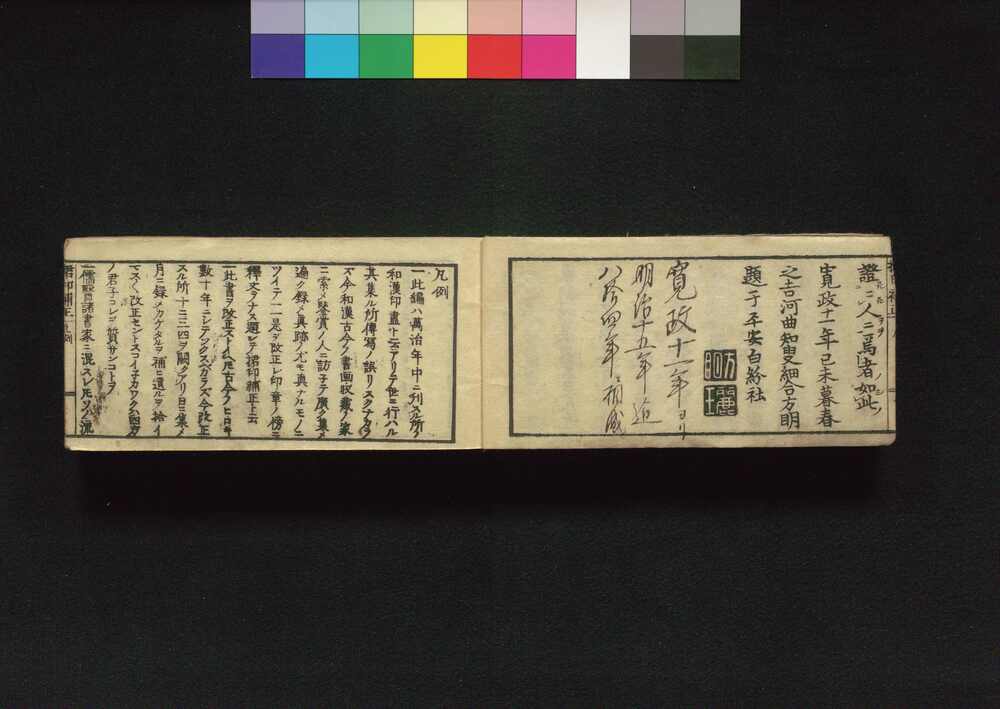 證二人ニ焉者如此
寛政十一年己未暮春
之吉河曲知叟細合方明
題于平安白紛社
寛政十一年ヨリ
明治十五年迠
八拾四年ニ相成
凡例
一此編ハ萬治年中ニ刊スル所ノ
和漢印盡ト云アリテ世ニ行ハル
其集ル所傳寫ノ誤リスクナカラ
ズ今和漢古今ノ書画収藏ノ家
ニ索メ鑒賞ノ人ニ訪テ廣ク集メ
遍ク録ス真跡ノ尤モ奥ナルモノニ
ツイテ一是ヲ改正シ印章ノ傍ニ
釋文ヲナス題シテ君印補正ト云
一此書ヲ改正スト
數十年ニシテツクスベカラズ今改正
スル所十ニ三四ヲ闕クアリ日ニ集メ
月ニ録メカケタルヲ補ヒ遺ルヲ拾イ
改正セント
ノ君子コレヲ質サンコトヲ
一儒醫諸書家ニ混スレ